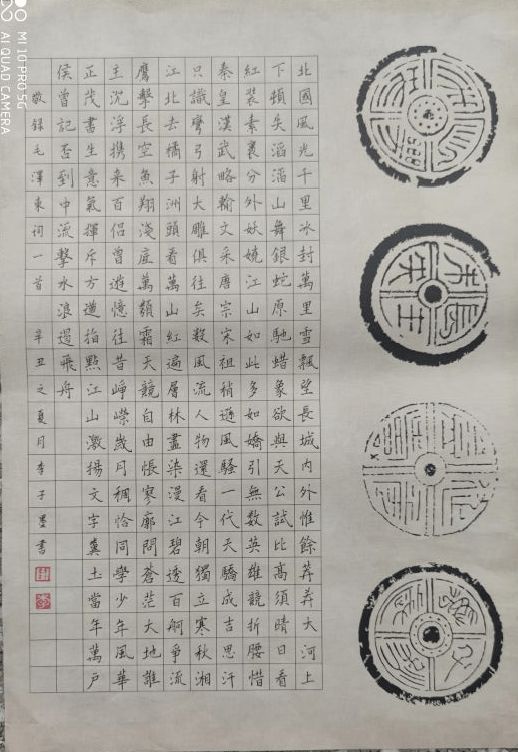 北國風光千里冰封萬里雪飄望長城內外惟餘莽莽大河上
下頓失滔滔山舞銀蛇原馳蜡象欲與天公試比高須晴日看
紅裝素裹分外妖嬈江山如此多如嬌引無数英雄競折腰惜
秦皇漢武略輸文采唐宗宋祖稍遜風騷一代天驕成吉思汗
只識彎弓射大雕俱往矣数風流人物還看今朝獨立寒秋湘
江北去橘子洲頭看萬山紅遍層林盡染漫江碧透百舸爭流
鷹擊長空魚翔淺底萬類霜天競自由悵寥廓問蒼茫大地誰
主沉浮携来百侶曾遊憶往昔崢嶸歲月稠恰同學少年風華
正茂書生意氣揮斥方遒指點江山激揚文字糞土當年萬戶
侯曾記否到中流擊水浪遏飛舟
敬録毛澤東詞一首 辛丑之夏月李子墨書
MI 10 PRO 5G
AI QUAD CAMERA